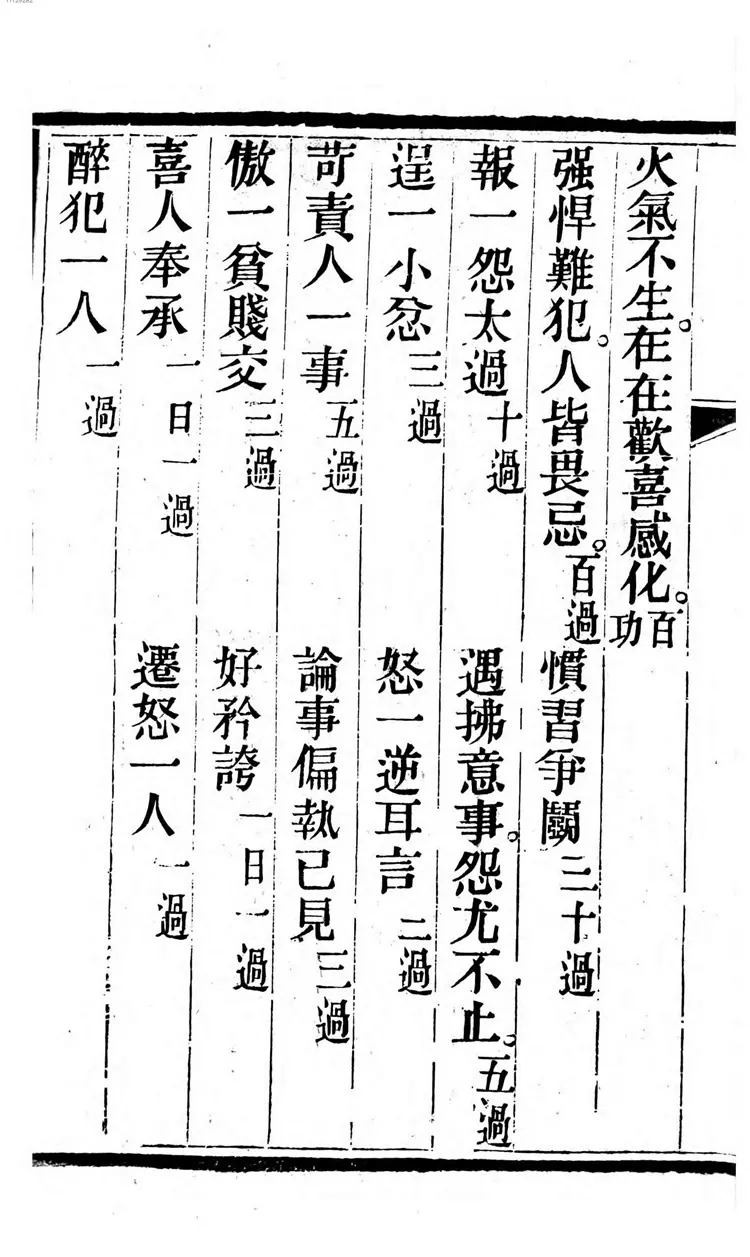 火氣不生。在在歡喜感化。百功
强悍難犯。人皆畏忌。百過 慣習爭鬬 三十過
報一怨太過 十過 遇拂意事。怨尤不止。五過
逞一小忿 三過 怒一逆耳言 二過
苛責人一事 五過 論事偏執已見 三過
傲一貧賤交 三過 好矜誇 一日一過
喜人奉承 一日一過 遷怒一人 一過
醉犯一人 一過